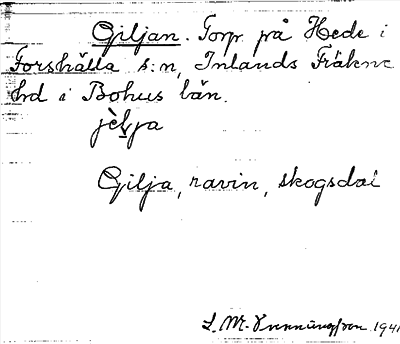 Giljan. Torp på Hede i
Forshälla s:n, Inlands Fräkne
hd i Bohus län.
jèlja
Gilja, ravin, skogsdal
S. M. 1941